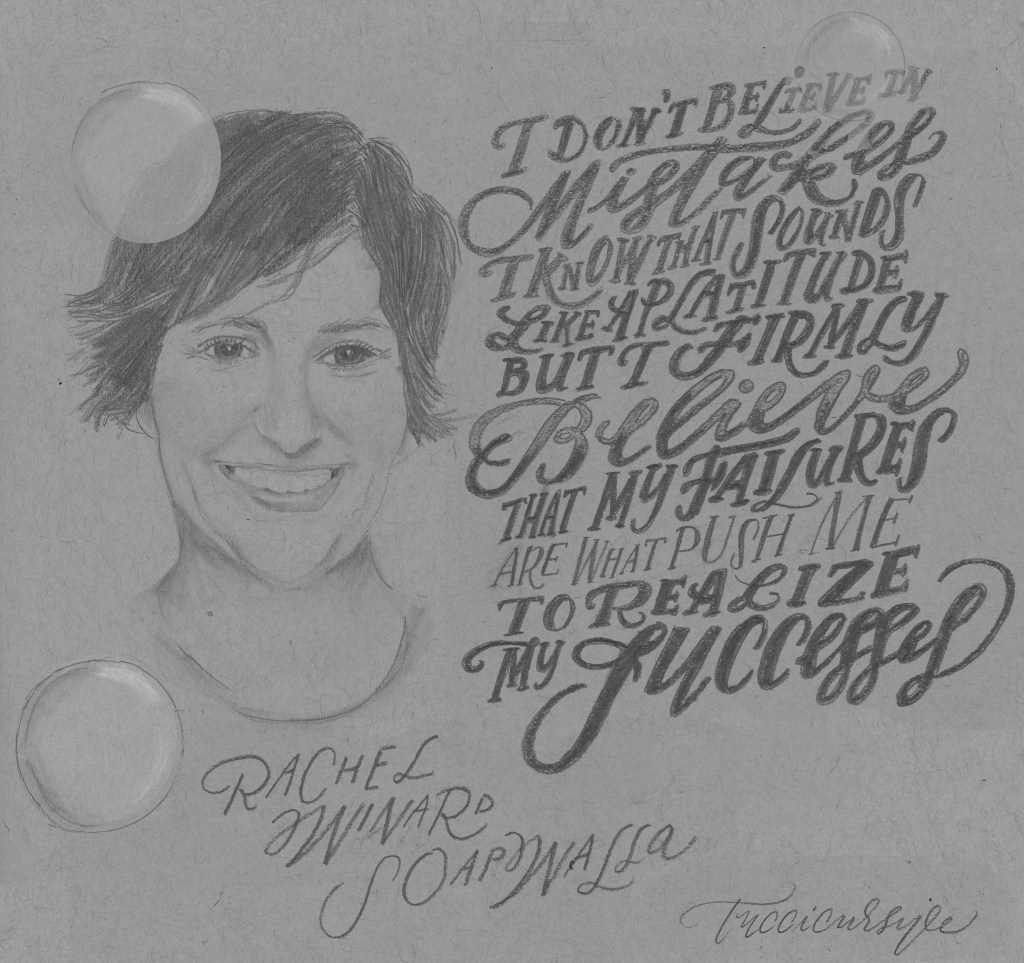 I DON'T BELIEVE IN
MISTAKES
I KNOW THAT SOUNDS
LIKE A PLATITUDE
BUT I FIRMLY
BELIEVE
THAT MY FAILURES
ARE WHAT PUSH ME
TO REALIZE
MY SUCCESSES
RACHEL
WINARD
SOAPWALLA